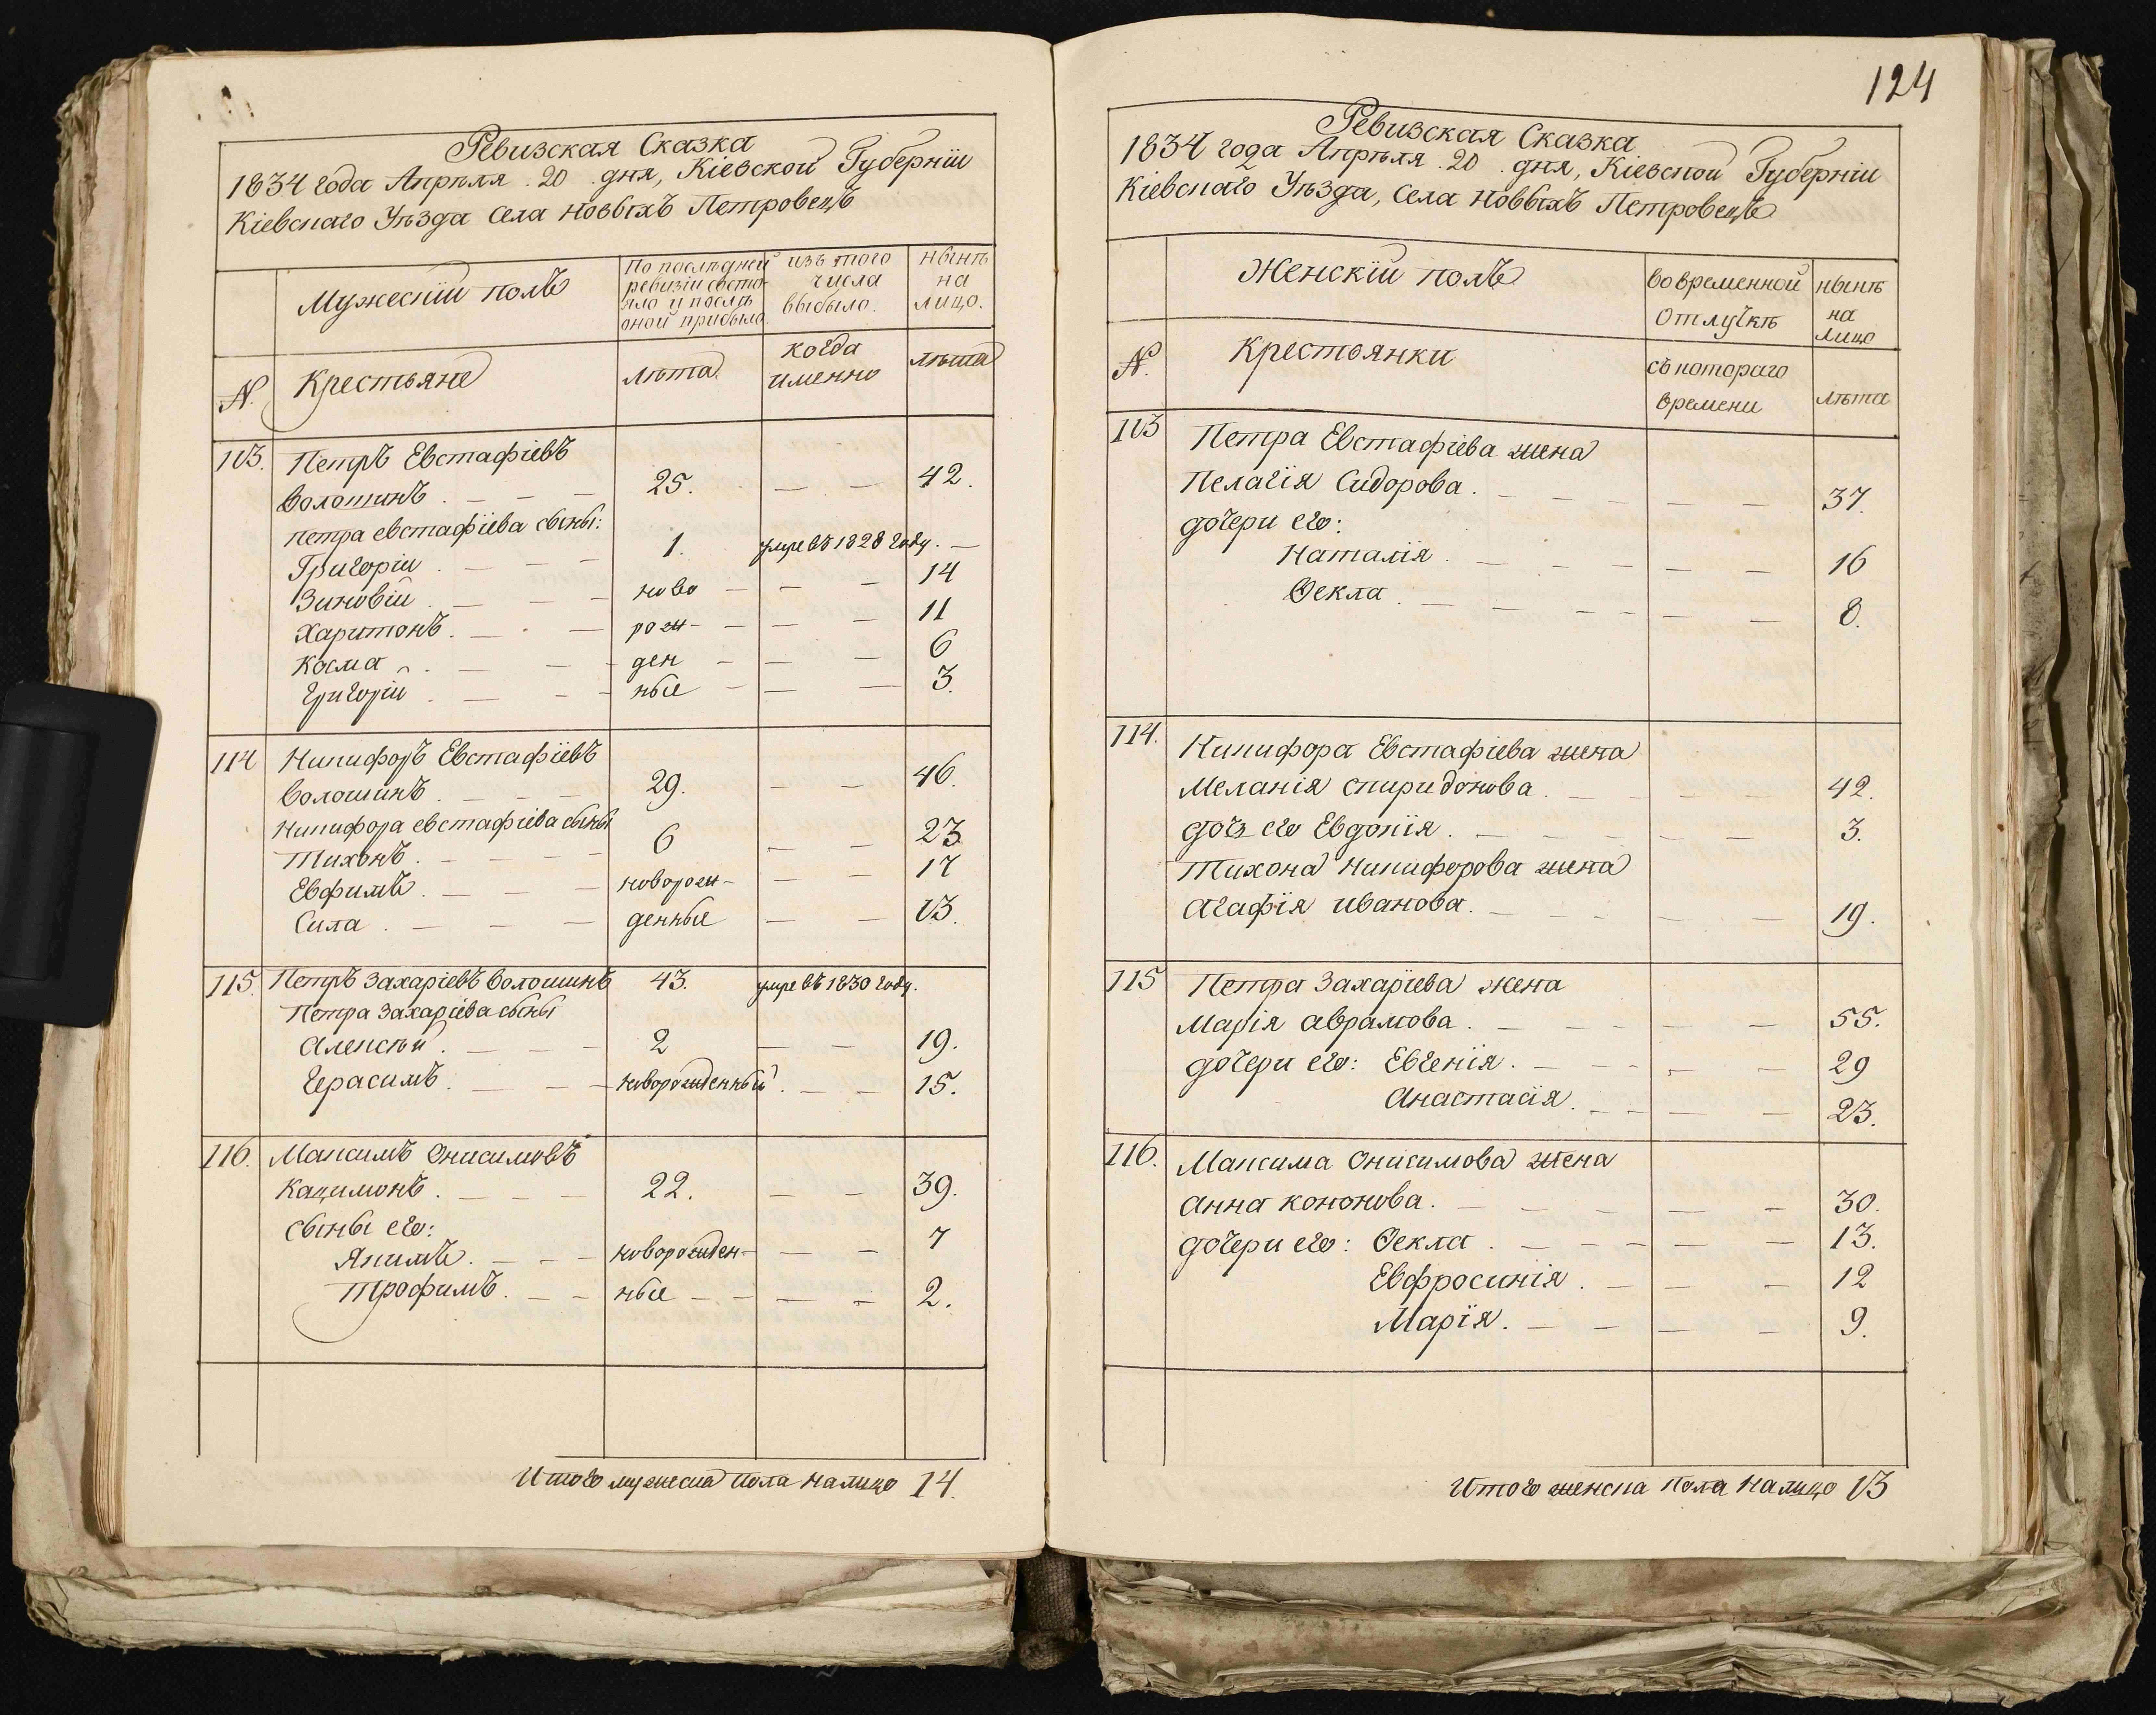 Ревизская Сказка
1834 года Апрѣля 20 дня, Кіевской Губерніи
Кіевскаго Уѣзда села новыхъ Петровецъ
Мужескій полъ
По послѣдней ревизіи состояло и послѣ оной прибыло.
изъ того числа выбыло.
нынѣ на лицо.
N. Крестьяне
лѣта.
когда именно
лѣта
113. Петръ Евстафіевъ
Волошинъ. 25. 42.
петра евстафіева сыны:
Григорій. 1. умре въ 1828 году.
Зиновій. ново 14
Харитонъ. рож- 11
Косма. ден 6
Григорій. ные 3.
114 Никифоръ Евстафіевъ
Волошинъ. 29. 46.
Никифора евстафіева сыны
Тихонъ. 6 23
Евфимъ. новорож- 17
Сила. денные 13.
115. Петръ Захаріевъ Волошинъ 43. умре въ 1830 году.
Петра Захаріева сыны
Алексѣй. 2 19.
Герасимъ. новорожденный. 15.
116. Максимъ Онисимовъ
Кацимонъ. 22. 39.
сыны его:
Якимъ. новорожден- 7
Трофимъ. ные 2.
Итого мужеска пола налицо 14.
124
Ревизская Сказка
1834 года Апрѣля 20 дня, Кіевской Губерніи
Кіевскаго Уѣзда, села новыхъ Петровецъ
Женскій полъ
Во временной отлучкѣ
нынѣ на лицо
N. Крестьянки
съ котораго времени
лѣта
113 Петра Евстафіева жена
Пелагія Сидорова. 37.
дочери его:
Наталія. 16
Ѳекла. 8.
114. Никифора Евстафіева жена
Меланія спиридонова. 42.
дочь его Евдокія. 3.
Тихона Никифорова жена
Агафія иванова. 19.
115 Петра Захаріева жена
Марія аврамова. 55.
дочери его: Евгенія. 29
Анастасія. 23.
116. Максима Онисимова жена
Анна кононова. 30.
дочери его: Ѳекла. 13.
Евфросинія. 12
Марія. 9.
Итого женска пола налицо 13